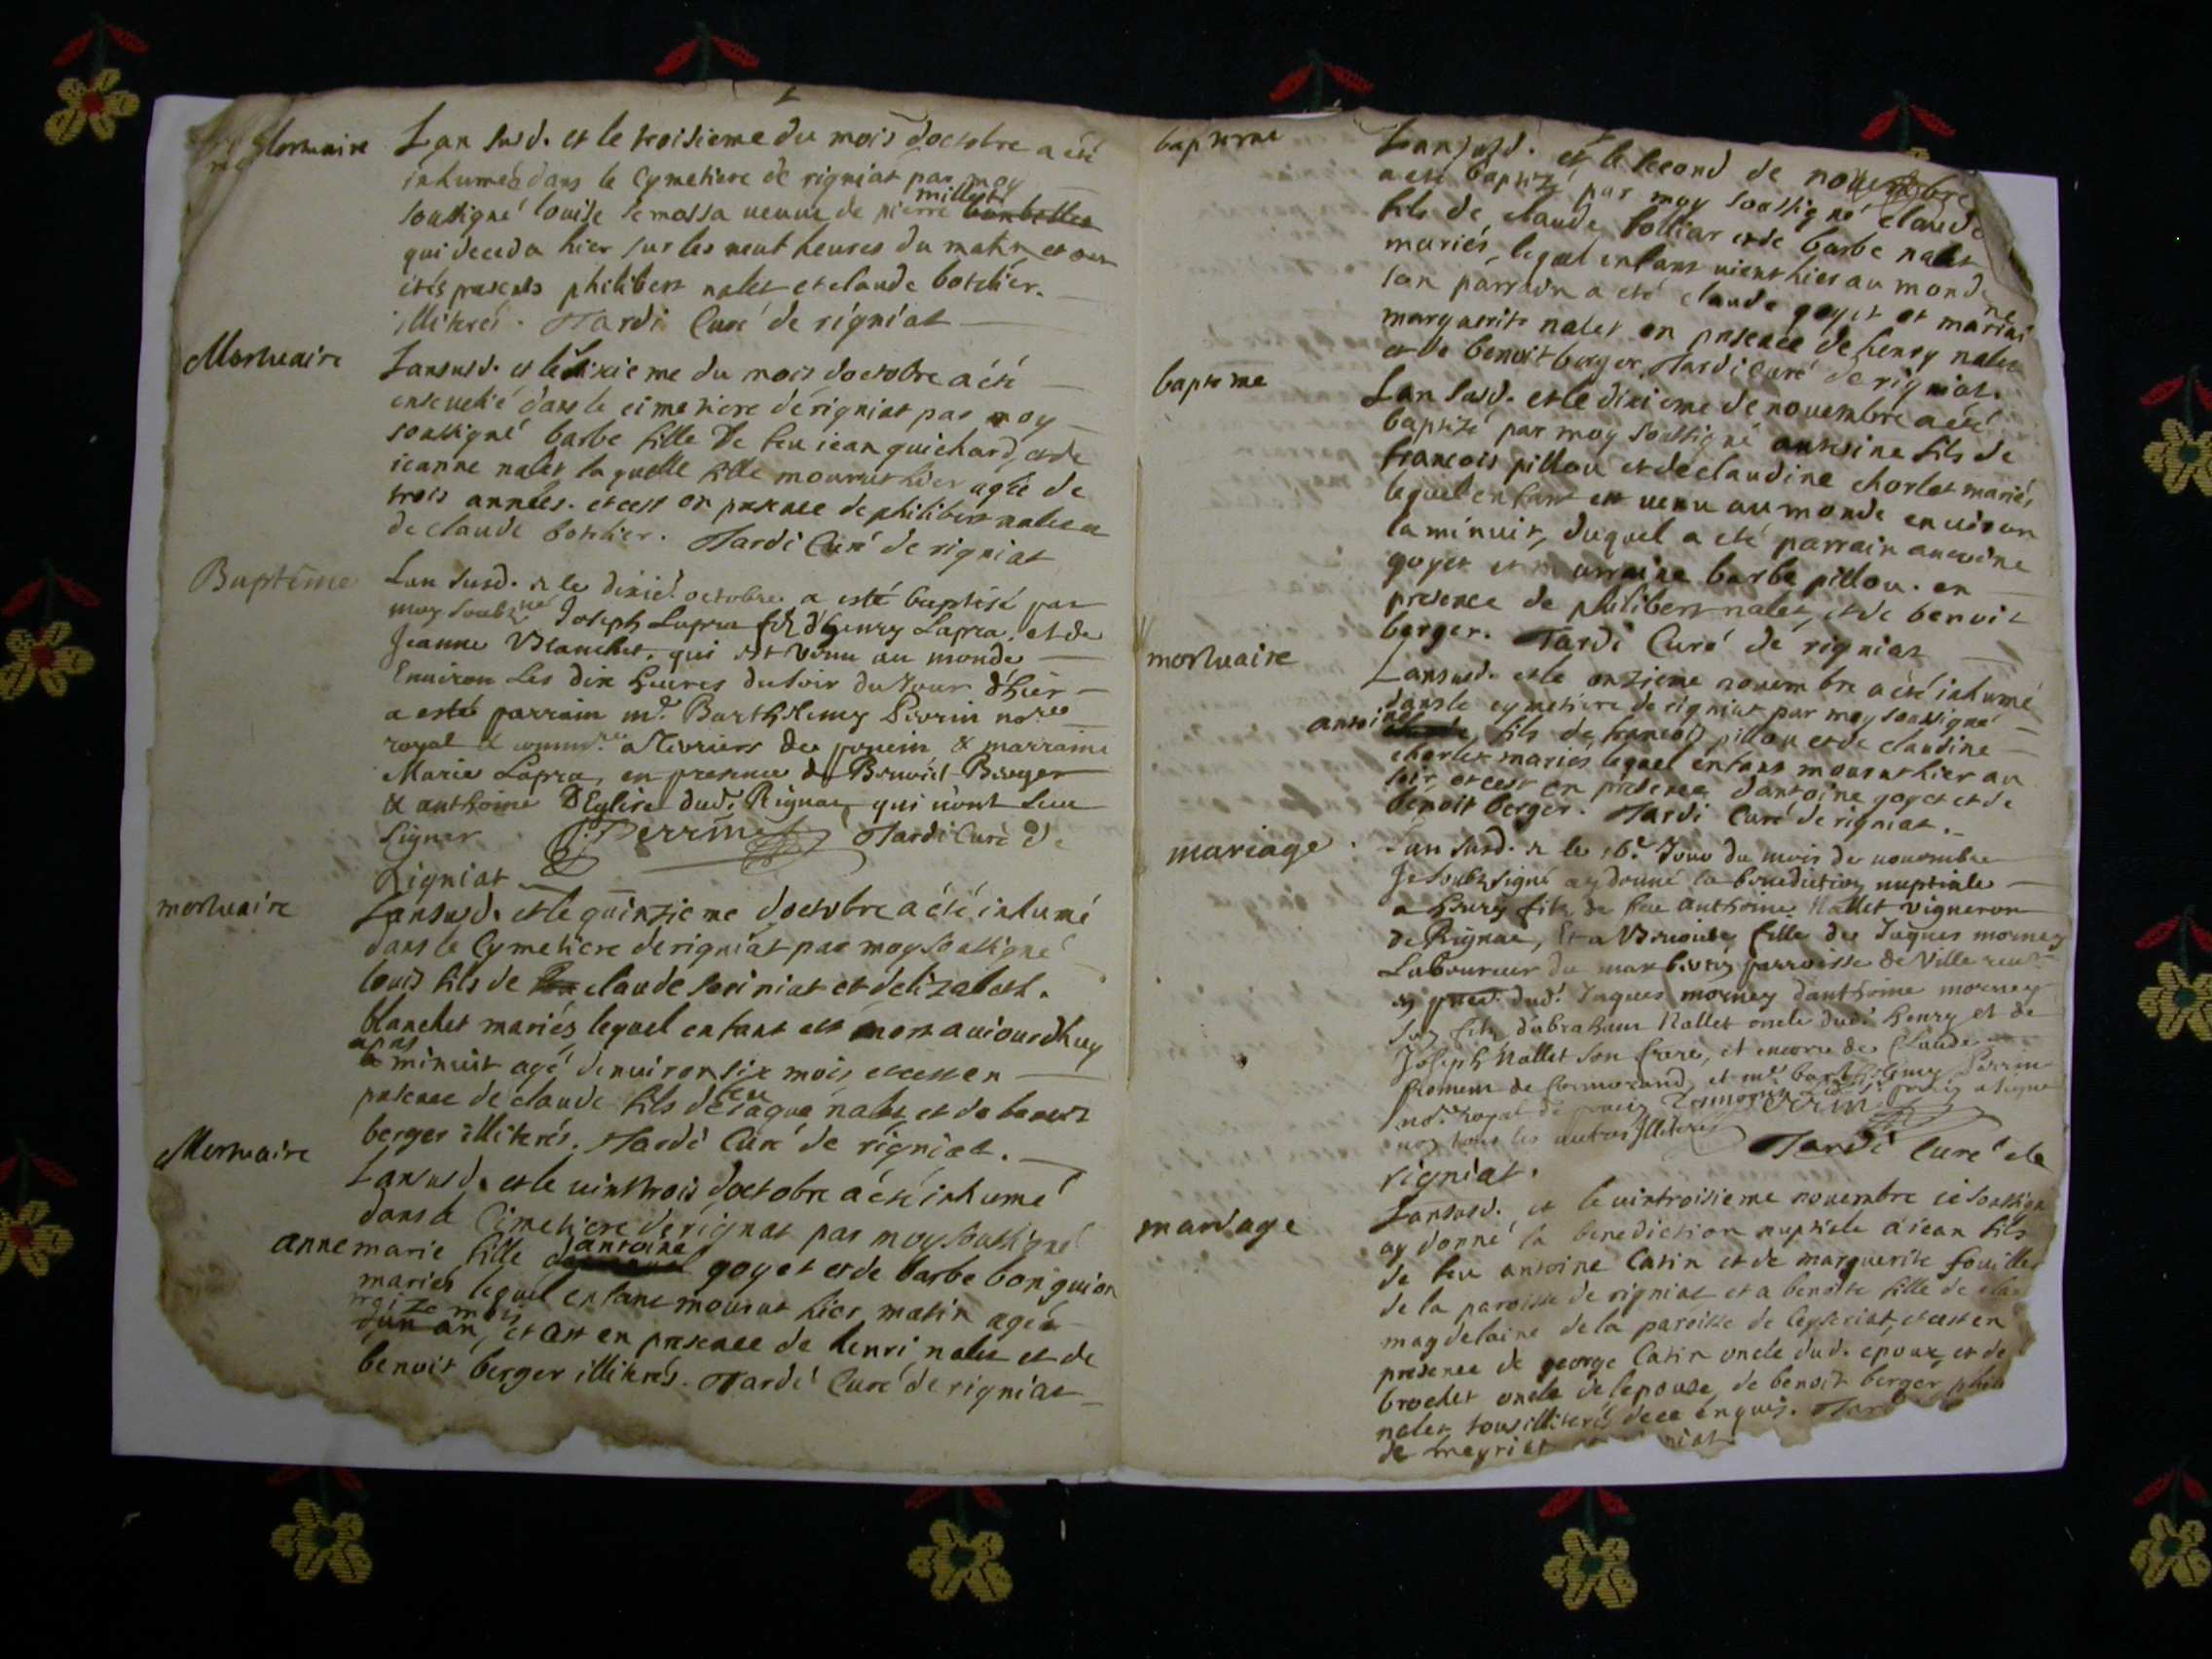 Mortuaire
Lan susd. et le troisieme du mois doctobre a été
inhumeé dans le Cymetiere de rigniat par moy
soussigné louise semassa veuve de pierre millet
qui deceda hier sur les neuf heures du matin et ont
étés presents philibert nalet et claude botelier.
illiterés. Tardi Curé de rigniat
Mortuaire
Lansusd. et le sixieme du mois doctobre a été
ensevelié dans le cimetiere de rigniat par moy
soussigné barbe fille de feu iean guichard, et de
ieanne nalet laquelle fille mourut hier ageé de
trois anneés. et cest en presence de philibert nalet et
de claude botelier. Tardi Curé de rigniat
Baptême
Lan susd. & le dixie. octobre a esté baptisé par
moy soubzné Joseph Lapra filz d'henry Lapra. et de
Jeanne Blanchet. qui est venu au monde
Environ Les dix heures du soir du Jour d'hier
a esté parrain me. Barthelemy Perrin nore
royal & commre a terriers de poncin & marraine
Marie Lapra, en presence de Benoict Berger
& anthoine D'Eglise dud. Rignat qui n'ont sceu
Signer Perrin Tardi Curé de
Rigniat
mortuaire
Lansusd. et le quinzieme doctobre a été inhumé
dans le Cymetiere de rigniat par moy soussigné
louis fils de claude soriniat et delizabeth.
blanchet mariés lequel enfant est mort auiourdhuy
a minuit agé denuiron six mois et cest en
presence de claude fils de feu iaque nalet et de benoit
berger illiterés. Tardi Curé de rigniat.
Mortuaire
Lansusd. et le vint trois doctobre a été inhumé
dans le Cimetiere de rignat par moy soussigné
anne marie fille dantoine goyet et de barbe bonguion
mariés lequel enfant mourut hier matin ageé
treize mois
d'un an, et cest en presence de henri nalet et de
benoit berger illiterés. Tardi Curé de rigniat
baptesme
Lansusd. et le second de novembre
a eté baptizé par moy soussigné claude
fils de claude folliar et de barbe nalet
mariés, lequel enfant vient hier au monde
son parrain a eté claude goyet et marraine
marguerite nalet en presence de henry nalet
et de benoit berger. Tardi curé de rigniat.
baptesme
Lan susd. et le dixieme de novembre a été
baptizé par moy soussigné antoine fils de
francois pillou et de claudine chorlet mariés
lequel enfant est venu au monde environ
la minuit, duquel a eté parrain antoine
goyet et marraine barbe pillou. en
presence de philibert nalet, et de benoit
berger. Tardi Curé de rigniat
mortuaire
Lansusd. et le onzieme novembre a été inhumé
dans le cymetiere de rigniat par moy soussigné
antoine fils de francois pillou et de claudine
chorlet mariés lequel enfant mourut hier au
soir, et cest en presence dantoine goyet et de
benoit berger. Tardi Curé de rigniat.
mariage
Lan susd. & le 16.e Jour du mois de novembre
Je soubzsigné ay donné la benediction nuptiale
a henry filz de feu anthoine Nallet vigneron
de Rignat, Et a Benoiste fille de Jaques morney
Laboureur du parroisse de Ville
en dud. Jaques morney danthoine morney
son filz dabraham Nallet oncle dud. henry et de
Joseph Nallet son frere, et encore de Claude
froment de Cormorand, et me. barthelemy Perrin
nore. royal de a signé
non tous les autres Illiterés Perrin
Tardi Curé de
rigniat.
mariage
Lansusd. et le vintroisieme novembre ie soussigné
ay donné la benediction nuptiale a iean fils
de feu antoine Catin et de marguerite fouillet
de la paroisse de rigniat et a benoite fille de
magdelaine de la paroisse de Ceyseriat, et cest en
presence de george Catin oncle dud. epoux, et de
brochet oncle de lepouse, de benoit berger
nalet tous illiterés de ce enquis.
de meyriat